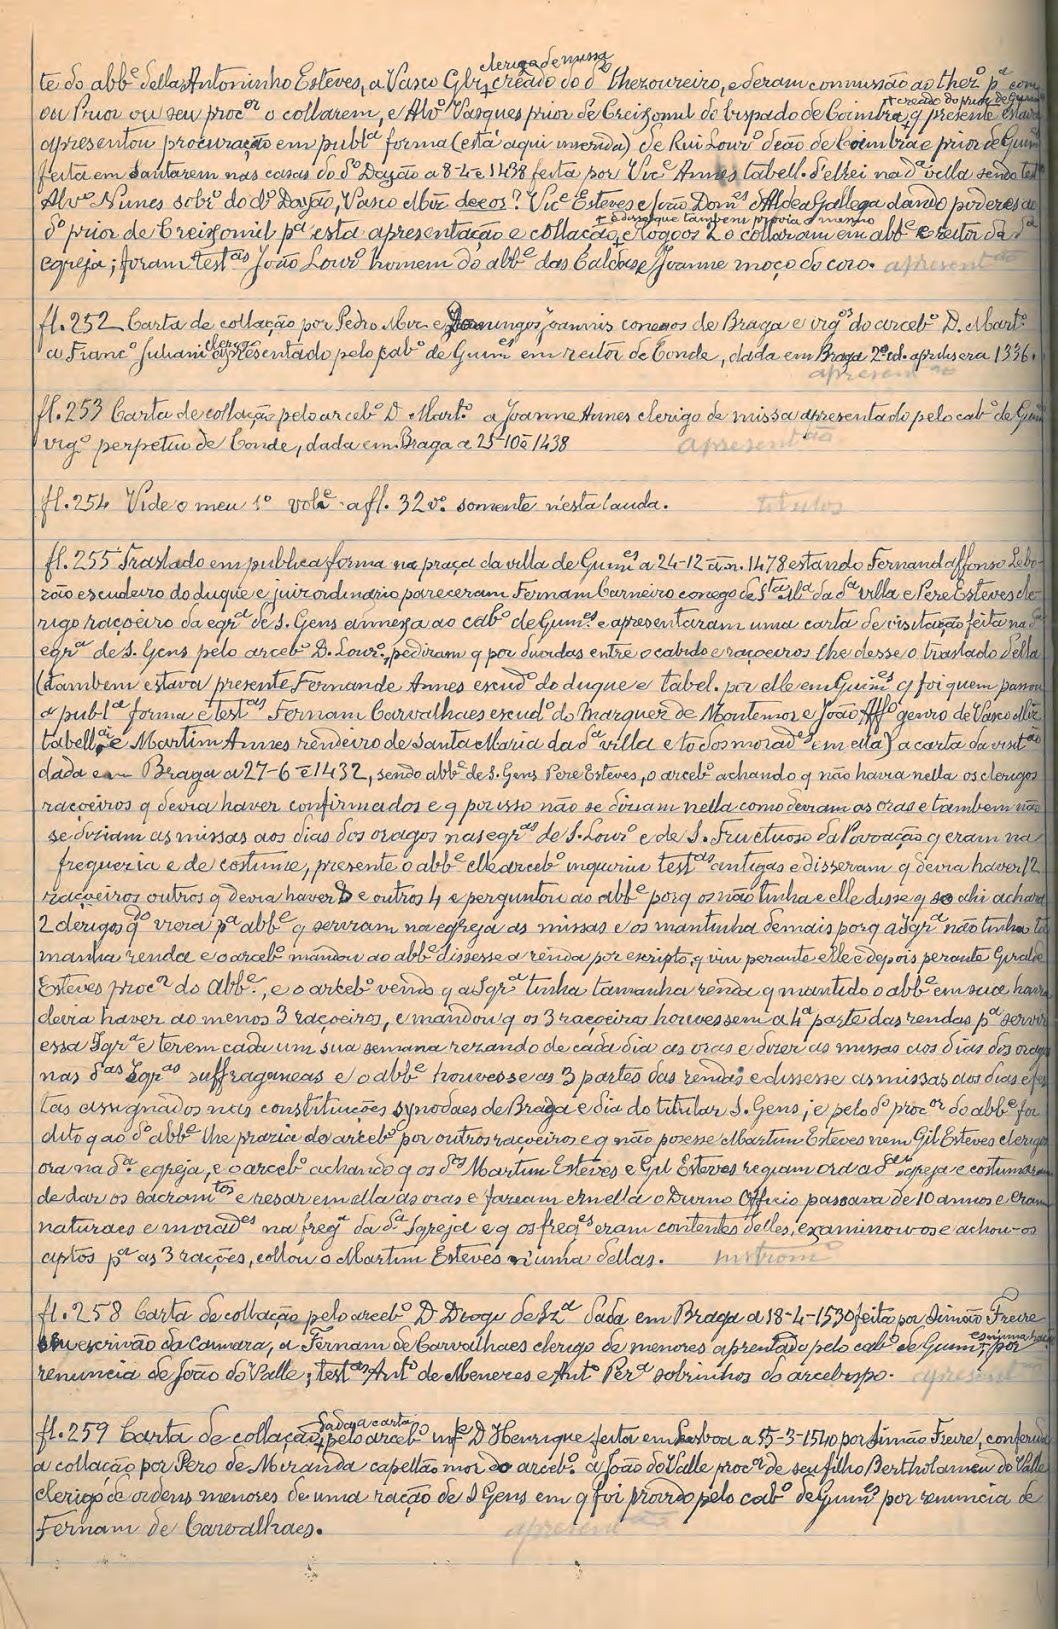 clerigo de missa
te do abbᵉ dellas Antoninho Esteves, a Vasco Glz + creado do dº thezoureiro, e deram commissão ao thezº pª com
+ creado do prior de Guim
ou Prior ou seu procºʳ o collarem, e Alvº Vasques prior de Creixomil do bispado de Coimbra + q presente estava
apresentou procuração em publª forma (está aqui inserida) de Rui Lourº deão de Coimbra e prior de Guim
feita em Santarem nas casas do dº Dayão a 8-4-e 1438 feita por Vicᵉ Annes tabell. d'elrei na dª villa sendo testᵃˢ
Alvº Nunes sobrº do dº Dayão, Vasco Miz deços? Vicᵉ Esteves e João Domᵉˢ d'Aldea Gallega dando poderes ao
+ e disse que tambem provia o mesmo
dº prior de Creixomil pª esta apresentação e collação + e logo os 2 o collaram em abbᵉ e reitor da dª
egreja; foram testᵃˢ João Lourº homem do abbᵉ das Caldas e Joanne moço do coro. apresentᵃᵒ
fl. 252 Carta de collação por Pedro Miz e Domingos Joannis conegos de Braga e vigºˢ do arcebº D. Martº
clerigo
a Francº Juliani apresentado pelo cabº de Guimᵉˢ em reitor de Conde, dada em Braga 2ª cal. aprilis era 1336.
apresentᵃᵒ
fl. 253 Carta de collação pelo arcebº D. Martº a Joanne Annes clerigo de missa apresentado pelo cabº de Guim
vigº perpetuo de Conde, dada em Braga a 25-10-e 1438 apresentᵃᵒ
fl. 254 Vide o meu 1º volᵉ a fl. 32 vº. somente n'esta lauda. titulos
fl. 255 Traslado em publica forma na praça da villa de Guimᵉˢ a 24-12-an. 1478 estando Fernand'affonso Lebo-
rão escudeiro do duque e juiz ordinario pareceram Fernam Carneiro conego de Sᵗᵃ Mª da dª villa e Pere Esteves cle-
rigo raçoeiro da egrª de S. Gens annexa ao cabº de Guimᵉˢ e apresentaram uma carta de visitação feita na dª
egrª de S. Gens pelo arcebº D. Lourº, pediram q por duvidas entre o cabido e raçoeiros lhe desse o traslado della
(tambem estava presente Fernande Annes escudº do duque e tabel. por elle em Guimᵉˢ q foi quem passou
a publª forma e testᵃˢ Fernam Carvalhaes escudº do Marquez de Montemor e João Affº genro de Vasco Miz
tabellᵃᵐ e Martim Annes rendeiro de Santa Maria da dª villa e todos moradᵉˢ em ella) a carta da visitᵃᵒ
dada em Braga a 27-6-e 1432, sendo abbᵉ de S. Gens Pere Esteves, o arcebº achando q não havia nella os clerigos
raçoeiros q devia haver confirmados e q por isso não se diziam nella como deviam as oras e tambem não
se diziam as missas aos dias dos oragos nas egrᵃˢ de S. Lourº e de S. Fructuoso da Povoação q eram na
freguezia e de costume, presente o abbᵉ elle arcebº inquiriu testᵃˢ antigas e disseram q devia haver 12
raçoeiros outros q devia haver 8 e outros 4 e perguntou ao abbᵉ porq os não tinha e elle disse q so ahi achara
2 clerigos qᵈᵒ viera pª abbᵉ q serviram na egreja as missas e os mantinha demais porq a Igrª não tinha ta
manha renda e o arcebº mandou ao abbᵉ dissesse a renda por escripto, q viu perante elle e depois perante Giralde
Esteves procºʳ do Abbᵉ, e o arcebº vendo q a Igrª tinha tamanha renda q mantido o abbᵉ em sua honra
devia haver ao menos 3 raçoeiros, e mandou q os 3 raçoeiros houvessem a 4ª parte das rendas pª servir
essa Igrª e terem cada um sua semana rezando de cada dia as oras e dizer as missas aos dias dos oragos
nas dᵃˢ Igrᵃˢ suffraganeas e o abbᵉ houvesse as 3 partes das rendas e dissesse as missas aos dias e fes
tas assignados nas constituições synodaes de Braga e dia do titular S. Gens; e pelo dº procºʳ do abbᵉ foi
dito q ao dº abbᵉ lhe prazia do arcebº por outros raçoeiros e q não pozesse Martim Esteves nem Gil Esteves clerigos
ora na dª egreja, e o arcebº achando q os dºˢ Martim Esteves e Gil Esteves regiam ora a dª igreja e costumaram
de dar os sacramᵗᵒˢ e resar em ella as oras e faziam em ella o Divino Officio passava de 10 annos e eram
naturaes e moradᵉˢ na fregª da dª Igreja e q os fregᵉˢ eram contentes delles, examinou-os e achou-os
aptos pª as 3 rações, collou o Martim Esteves n'uma dellas. instromᵒ
fl. 258 Carta de collação pelo arcebº D. Diogo de Szª dada em Braga a 18-4-1530 feita por Simão Freire
escrivão da camara, a Fernam de Carvalhaes clerigo de menores aprentado pelo cabº de Guimᵉˢ + por
renuncia de João do Valle; testᵃˢ Antº de Menezes e Antº Perª sobrinhos do arcebispo. apresentᵃᵒ
dada a carta
fl. 259 Carta de collação + pelo arcebº infᵉ D. Henrique feita em Lisboa a 15-3-1540 por Simão Freire, conferida
a collação por Pero de Miranda capellão mor do arcebº a João do Valle procºʳ de seu filho Bertholameu do Valle
clerigo de ordens menores de uma ração de S. Gens em q foi provido pelo cabº de Guimᵉˢ por renuncia de
Fernam de Carvalhaes. apresentᵃᵒ